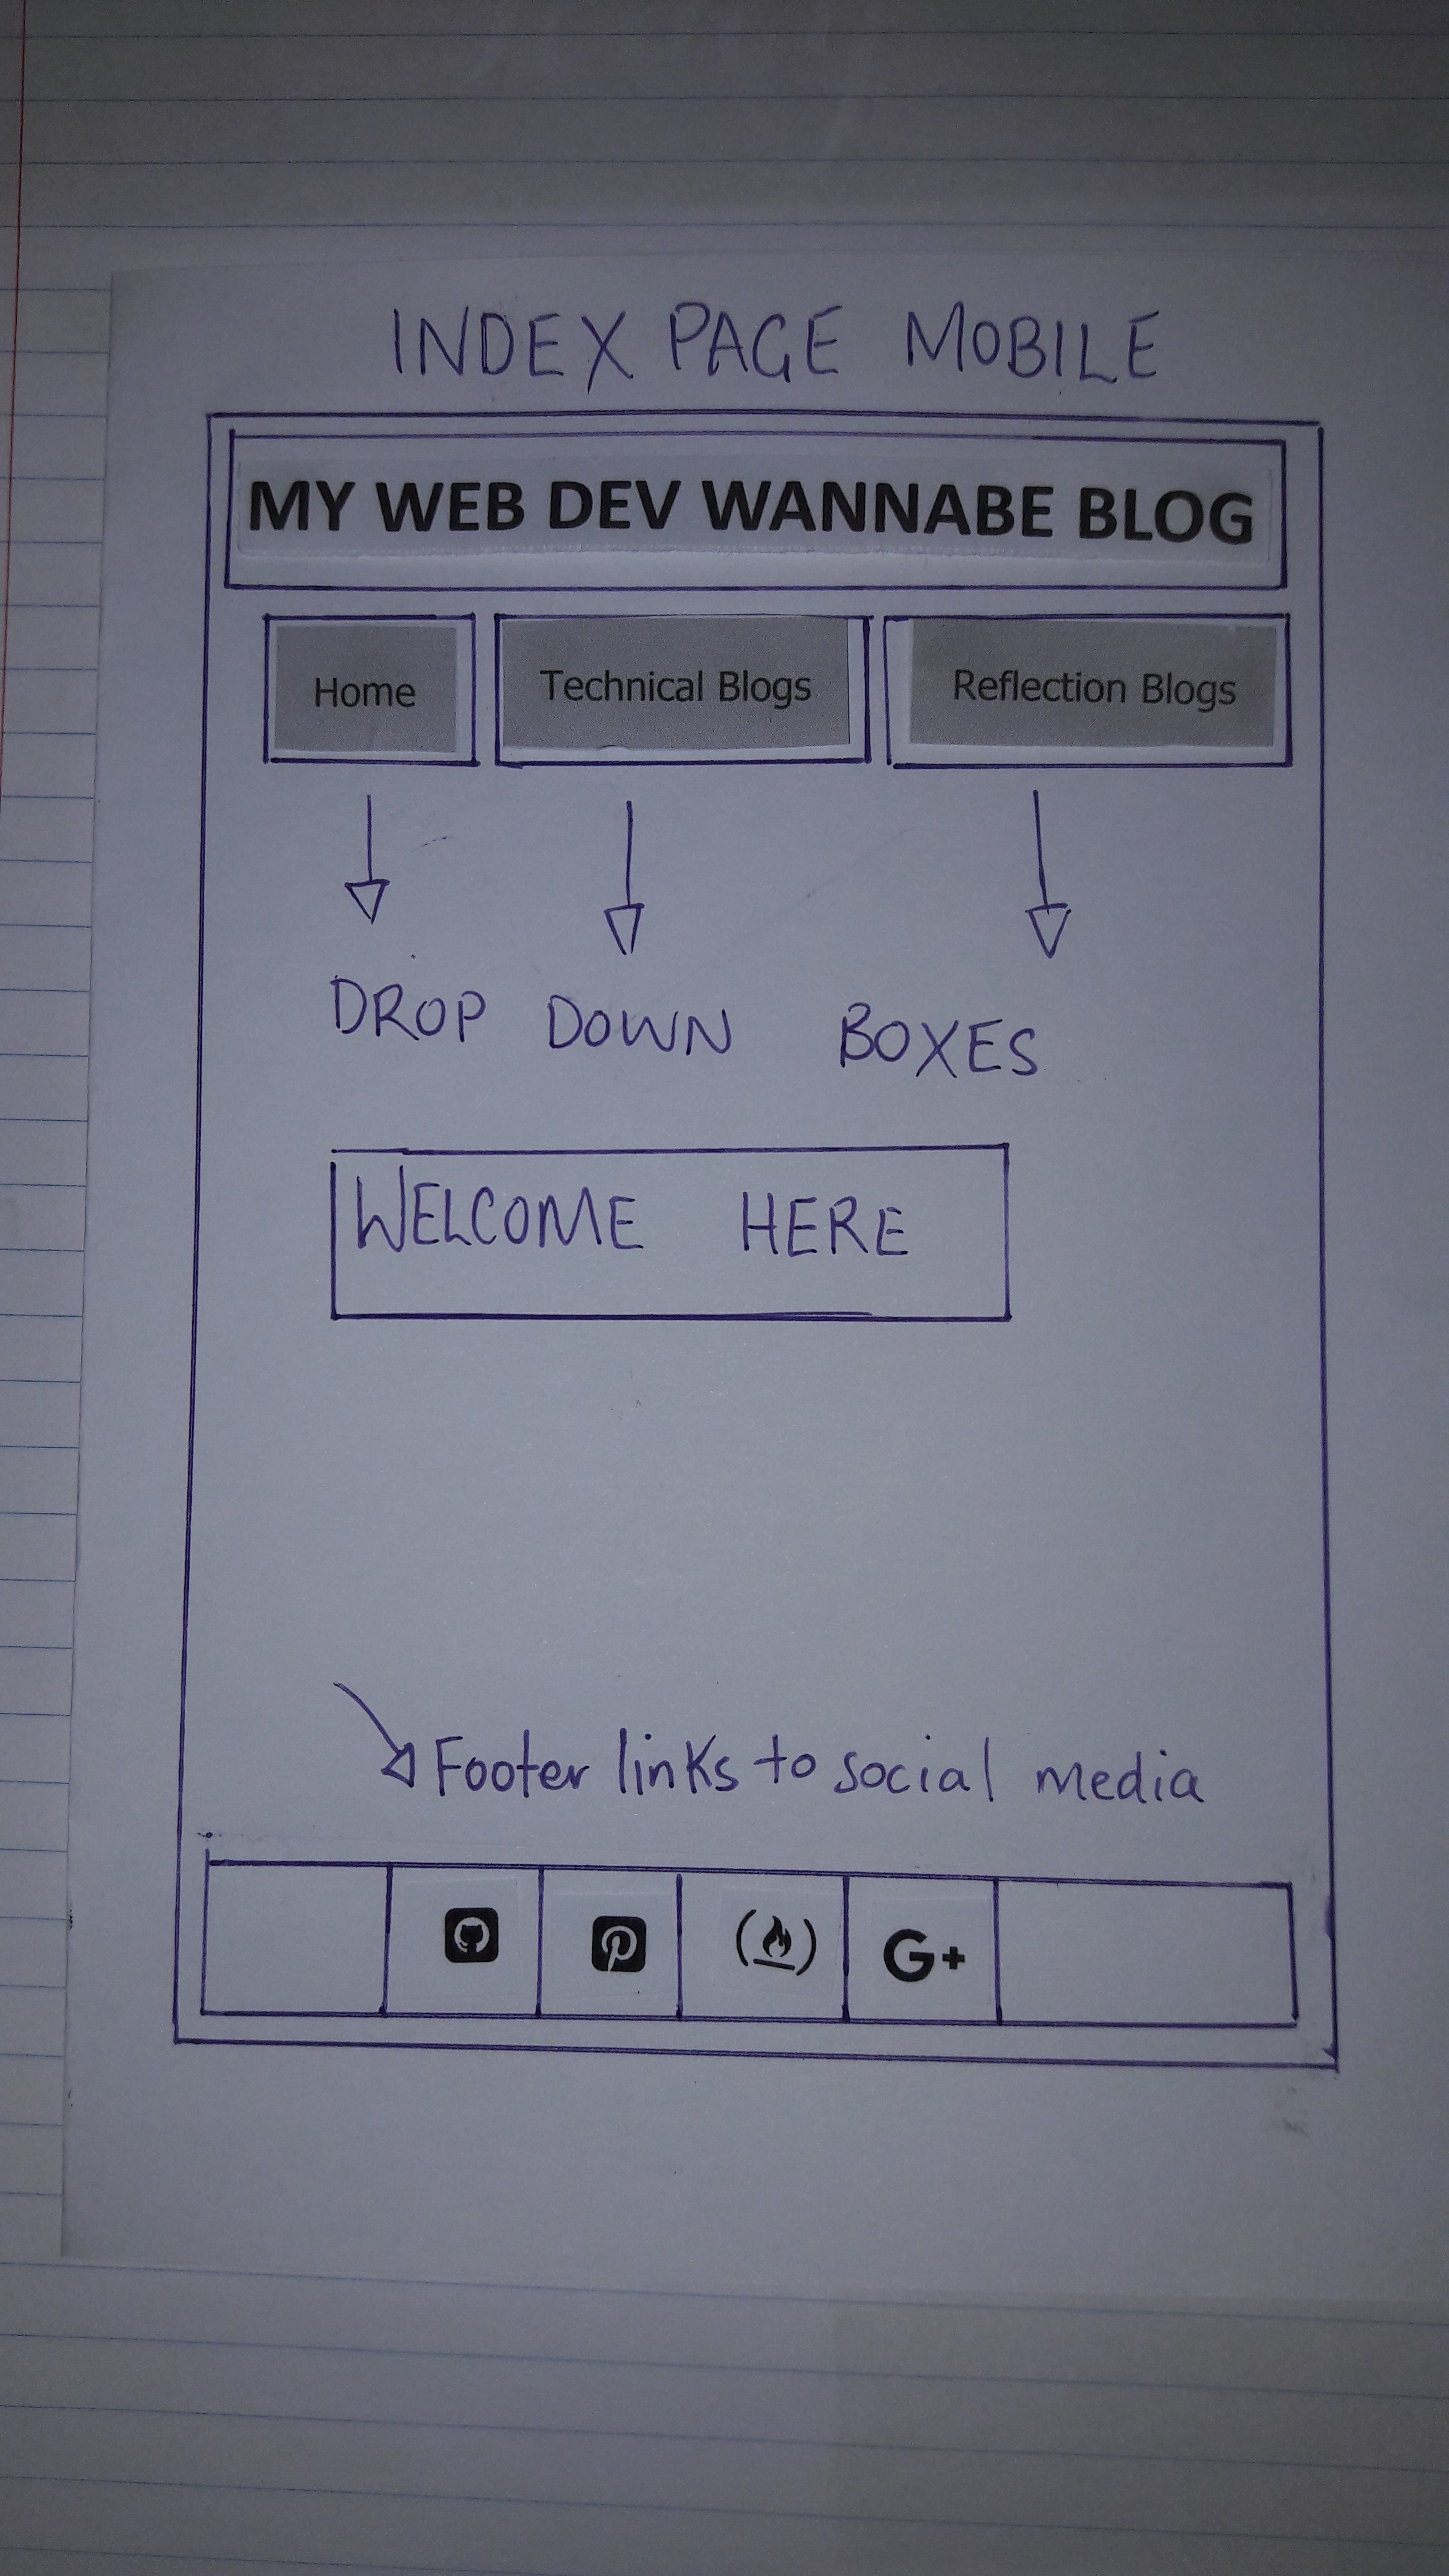 INDEX PAGE MOBILE
MY WEB DEV WANNABE BLOG
Home Technical Blogs Reflection Blogs
DROP DOWN BOXES
WELCOME HERE
Footer links to social media
G+